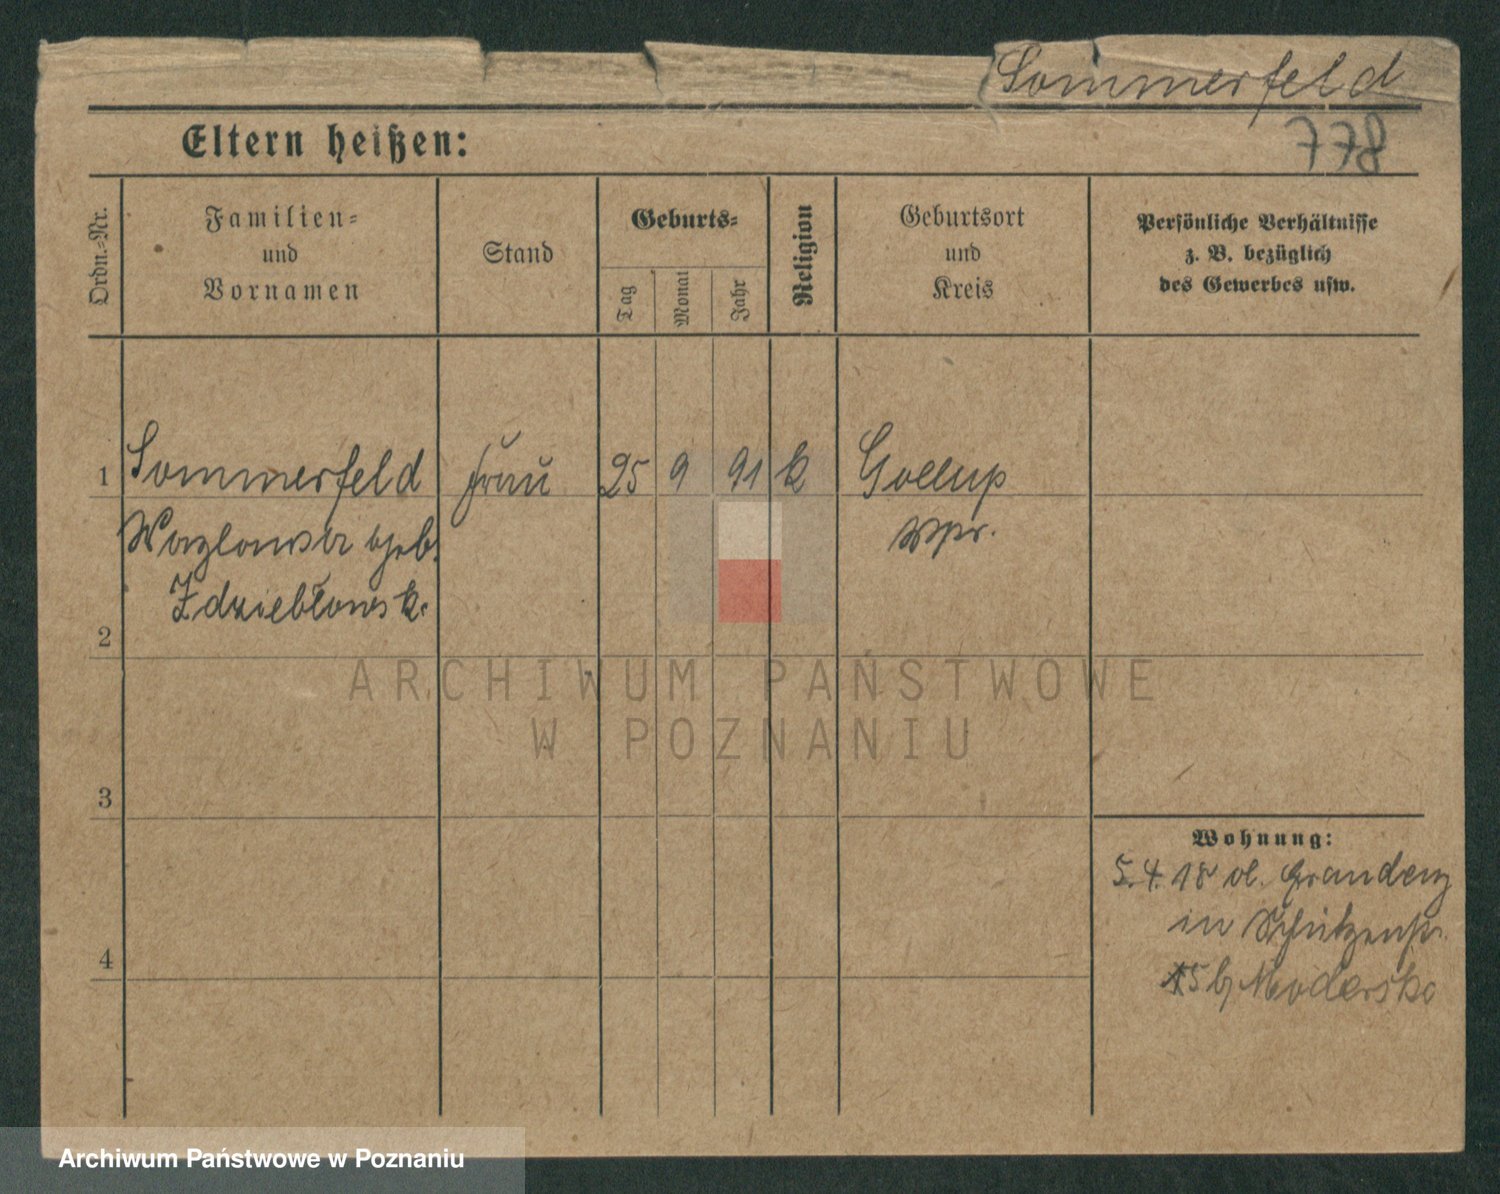 Sommerfeld
778
Eltern heißen:
Ordn.-Nr.
Familien-
und
Vornamen
Stand
Geburts-
Tag
Monat
Jahr
Religion
Geburtsort
und
Kreis
Persönliche Verhältnisse
z. B. bezüglich
des Gewerbes usw.
1 Sommerfeld Frau 25 9 91 k Gollup
geb. Wpr.
Zdzieblowsk.
2
3
4
Wohnung:
5.4.18 v. Graudenz
in Schützenstr.
15 b/
ARCHIWUM PAŃSTWOWE
W POZNANIU
Archiwum Państwowe w Poznaniu